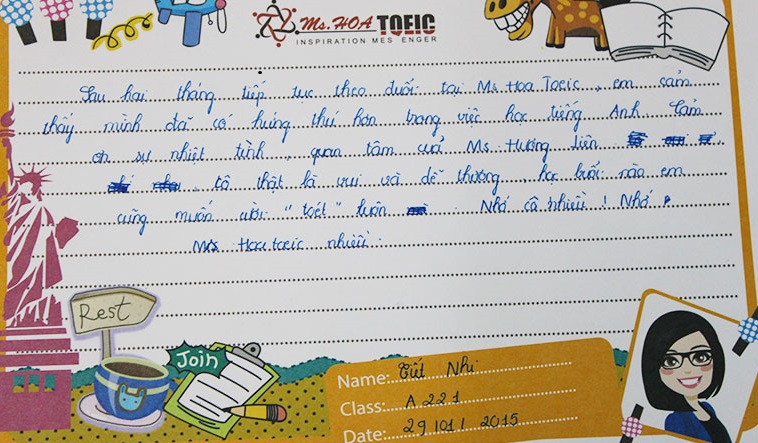 Ms. HOA TOEIC
INSPIRATION MES ENGER
Sau hai tháng tiếp tục theo đuổi tại Ms Hoa Toeic, em cảm
thấy mình đã có hứng thú hơn trong việc học tiếng Anh. Cảm
ơn sự nhiệt tình, quan tâm của Ms. Hương Liên
, cô thật là vui và dễ thương, học buổi nào em
cũng muốn cười "toét" luôn. Nhớ cô nhiều! Nhớ
Ms Hoa toeic nhiều.
Rest
Join
Name: Tút Nhi
Class: A221
Date: 29/01/2015